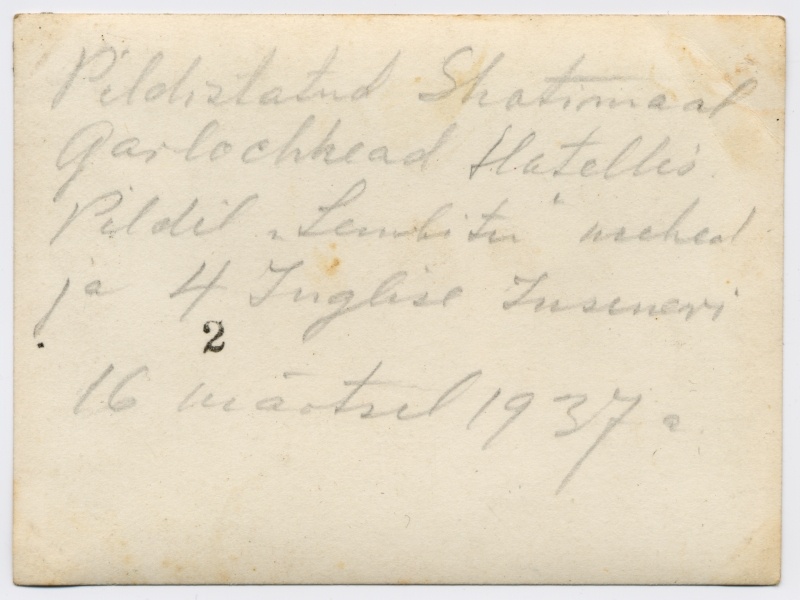 Pildistatud Shotimaal
Garlochhead Hotellis.
Pildil „Lembitu" mehed
ja 4 Inglise Inseneri
2
16 märtsil 1937 a.